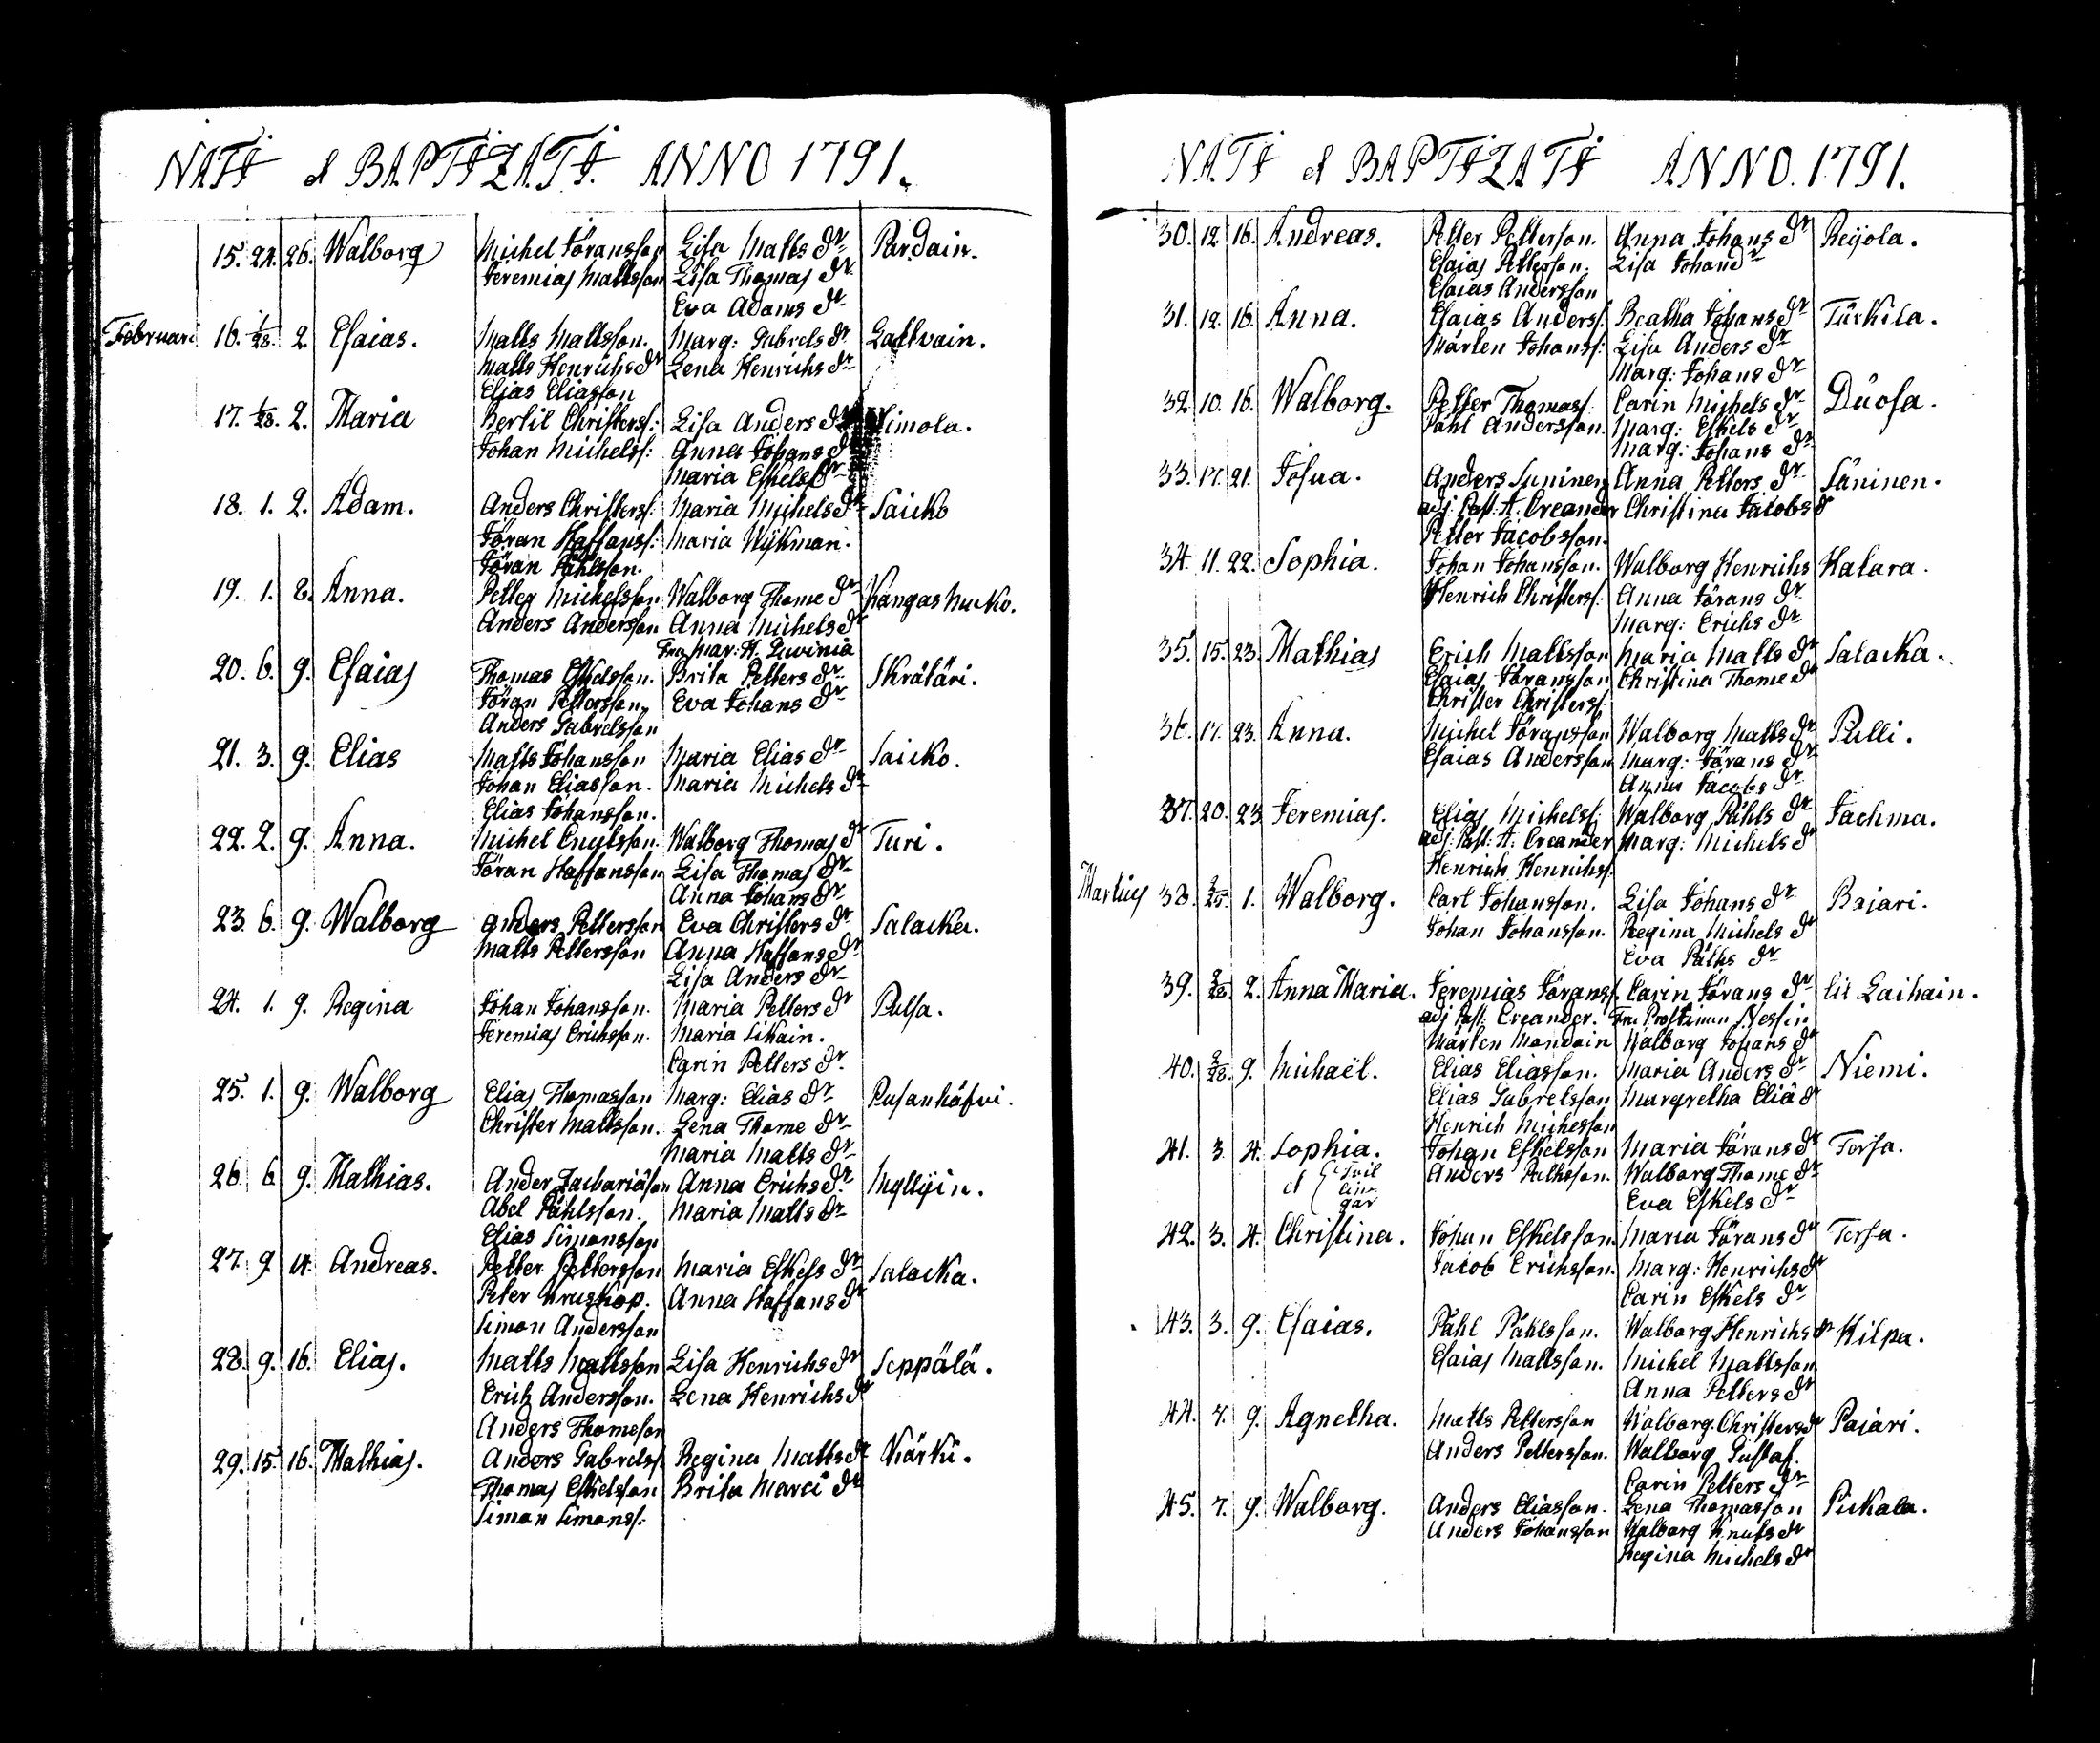 NATI & BAPTIZATI. ANNO 1791.
15. 24. 26. Walborg Michel Jöransson Lisa Matts dr Pardain.
Jeremias Mattsson Lisa Thomas dr
Eva Adams dr
Februari 16. 1/28. 2. Esaias. Matts Mattsson. Marg: Gabrels dr
Matts Henrichs dr Lena Henrichs dr
Elias Eliasson
17. 1/28. 2. Maria Bertil Christerss: Lisa Anders dr
Johan Michelss: Anna Johans dr
Maria Eskels dr
18. 1. 2. Adam. Anders Christerss: Maria Michels dr Saicko
Jöran Staffanss: Maria Wijkman.
Jöran Påhlsson.
19. 1. 2. Anna. Petter Michelsson Walborg Thome dr Kangas
Anders Andersson Anna Michels dr
20. 6. 9. Esaias Thomas Eskelsson. Brita Petters dr Skrätäri.
Jöran Pettersson Eva Johans dr
Anders Gabrelsson
21. 3. 9. Elias Matts Johansson Maria Elias dr Saicko.
Johan Eliasson. Maria Michels dr
Elias Johansson.
22. 2. 9. Anna. Michel Walborg Thomas dr Turi.
Jöran Staffansson Lisa Thomas dr
Anna Johans dr
23. 6. 9. Walborg Anders Pettersson Eva Christers dr Salacka.
Matts Pettersson Anna Staffans dr
Lisa Anders dr
24. 1. 9. Regina Johan Johansson. Maria Petters dr Pulsa.
Jeremias Erichsson. Maria Sikain.
Carin Petters dr
25. 1. 9. Walborg Elias Thomasson Marg: Elias dr
Christer Mattsson. Lena Thome dr
Maria Matts dr
26. 6. 9. Mathias. Ander Zachariæson Anna Erichs dr Myllyin.
Abel Påhlsson. Maria Matts dr
Elias Simonsson
27. 9. 14. Andreas. Petter Pettersson Maria Eskels dr Salacka.
Peter Anna Staffans dr
Simon Andersson
28. 9. 16. Elias. Matts Mattsson Lisa Henrichs dr Seppälä.
Erich Andersson. Lena Henrichs dr
Anders Thomeson
29. 15. 16. Mathias. Anders Gabrelss: Regina Matts dr Kärki.
Thomas Eskelsson Brita Marci dr
Simon Simonss:
NATI & BAPTIZATI ANNO. 1791.
30. 12. 16. Andreas. Petter Petterson. Anna Johans dr Reijola.
Esaias Pettersson. Lisa Johans dr
Esaias Andersson
31. 12. 16. Anna. Esaias Anderss: Beatha Johans dr Türkila.
Mårten Johanss: Lisa Anders dr
Marg: Johans dr
32. 10. 16. Walborg. Petter Thomass: Carin Michels dr
Påhl Andersson. Marg: Eskels dr
Marg: Johans dr
33. 17. 21. Josua. Anders Suninen Anna Petters dr
adj: Past: A. Creander Christina Jacobs dr
Petter Jacobsson.
34. 11. 22. Sophia. Johan Johansson. Walborg Henrichs Halara.
Henrich Christerss: Anna Jörans dr
Marg: Erichs dr
35. 15. 23. Mathias Erich Mattsson Maria Matts dr Salacka.
Esaias Jöransson Christina Thome dr
Christer Christerss:
36. 17. 23. Anna. Michel Jöransson Walborg Matts dr Pulli.
Esaias Andersson Marg: Jörans dr
Anna Jacobs dr
37. 20. 23 Jeremias. Elias Michelss: Walborg Påhls dr Jachma.
adj: Past: A. Creander Marg: Michels dr
Henrich Henrichss:
Martius 38. 2/25. 1. Walborg. Carl Johansson. Lisa Johans dr Bajari.
Johan Johansson. Regina Michels dr
Eva Påhls dr
39. 2/28. 2. Anna Maria. Jeremias Jöranss: Carin Jörans dr Lill Laihain.
adj: Past: Creander. Fru Prostinnan Nessin
Mårten Mondain Walborg Johans dr
40. 2/28. 9. Michaël. Elias Eliasson. Maria Anders dr Niemi.
Elias Gabrelsson Margretha Eliæ dr
Henrich Michesson
41. 3. 4. Sophia. Johan Eskelsson Maria Jörans dr Torsa.
& Tvillingar Anders Walborg Thome dr
Eva Eskels dr
42. 3. 4. Christina. Johan Eskelsson Maria Jörans dr Torsa.
Jacob Erichsson. Marg: Henrichs dr
Carin Eskels dr
43. 3. 9. Esaias. Påhl Påhlsson. Walborg Henrichs dr Kilpa.
Esaias Mattsson. Michel Mattsson
Anna Petters dr
44. 7. 9. Agnetha. Matts Pettersson Walborg Christers dr Pajari.
Anders Pettersson. Walborg Gustaf.
Carin Petters dr
45. 7. 9. Walborg. Anders Eliasson. Lena Thomasson Pickala.
Anders Johansson Walborg Knuts dr
Regina Michels dr